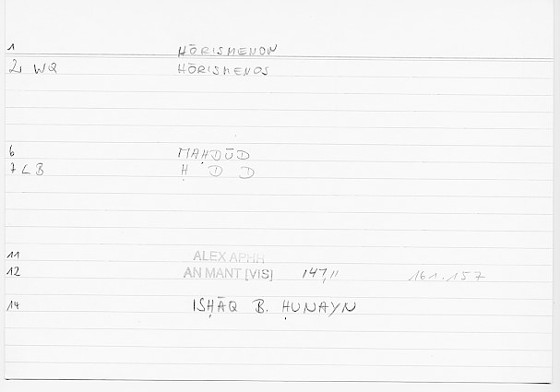 1 HŌRISMENON
2 WQ HŌRISMENOS
6 MAḤDŪD
7 LB Ḥ D D
11 ALEX APHR
12 AN MANT [VIS] 147,11 161.157
14 ISḤĀQ B. ḤUNAYN